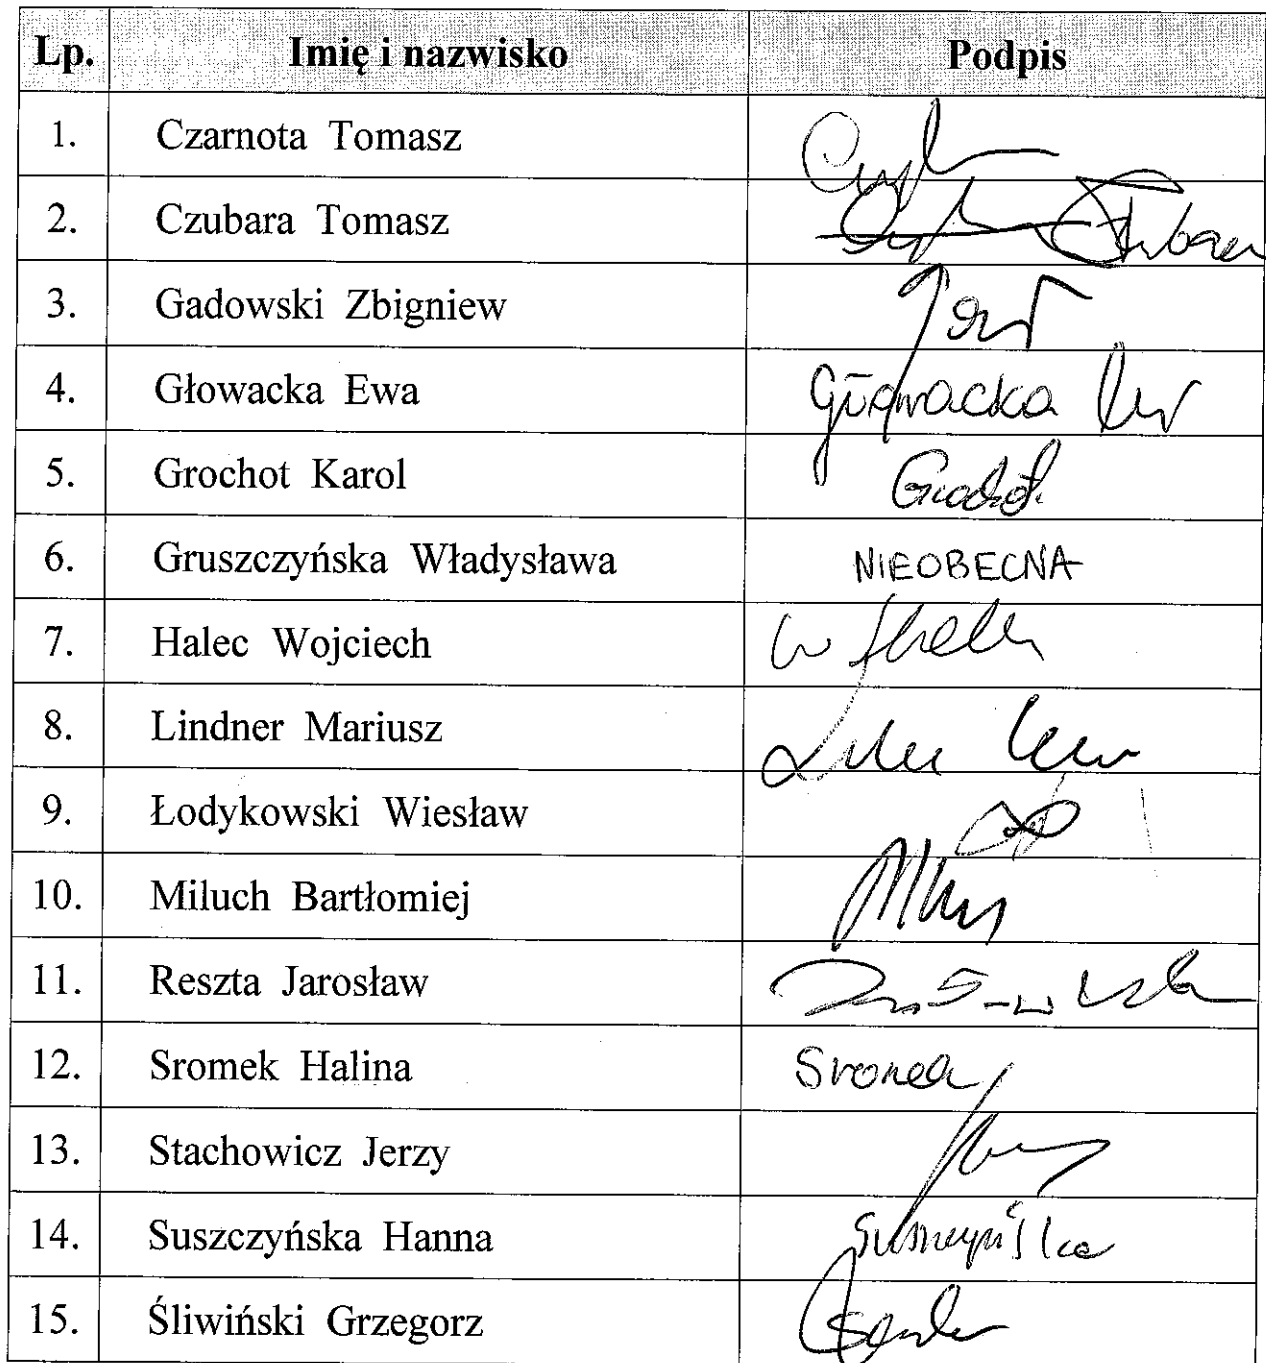 Lp. Imię i nazwisko Podpis
1. Czarnota Tomasz
2. Czubara Tomasz
3. Gadowski Zbigniew
4. Głowacka Ewa Głowacka
5. Grochot Karol Grochot
6. Gruszczyńska Władysława NIEOBECNA
7. Halec Wojciech
8. Lindner Mariusz
9. Łodykowski Wiesław
10. Miluch Bartłomiej
11. Reszta Jarosław
12. Sromek Halina Sromek
13. Stachowicz Jerzy
14. Suszczyńska Hanna Suszczyńska
15. Śliwiński Grzegorz